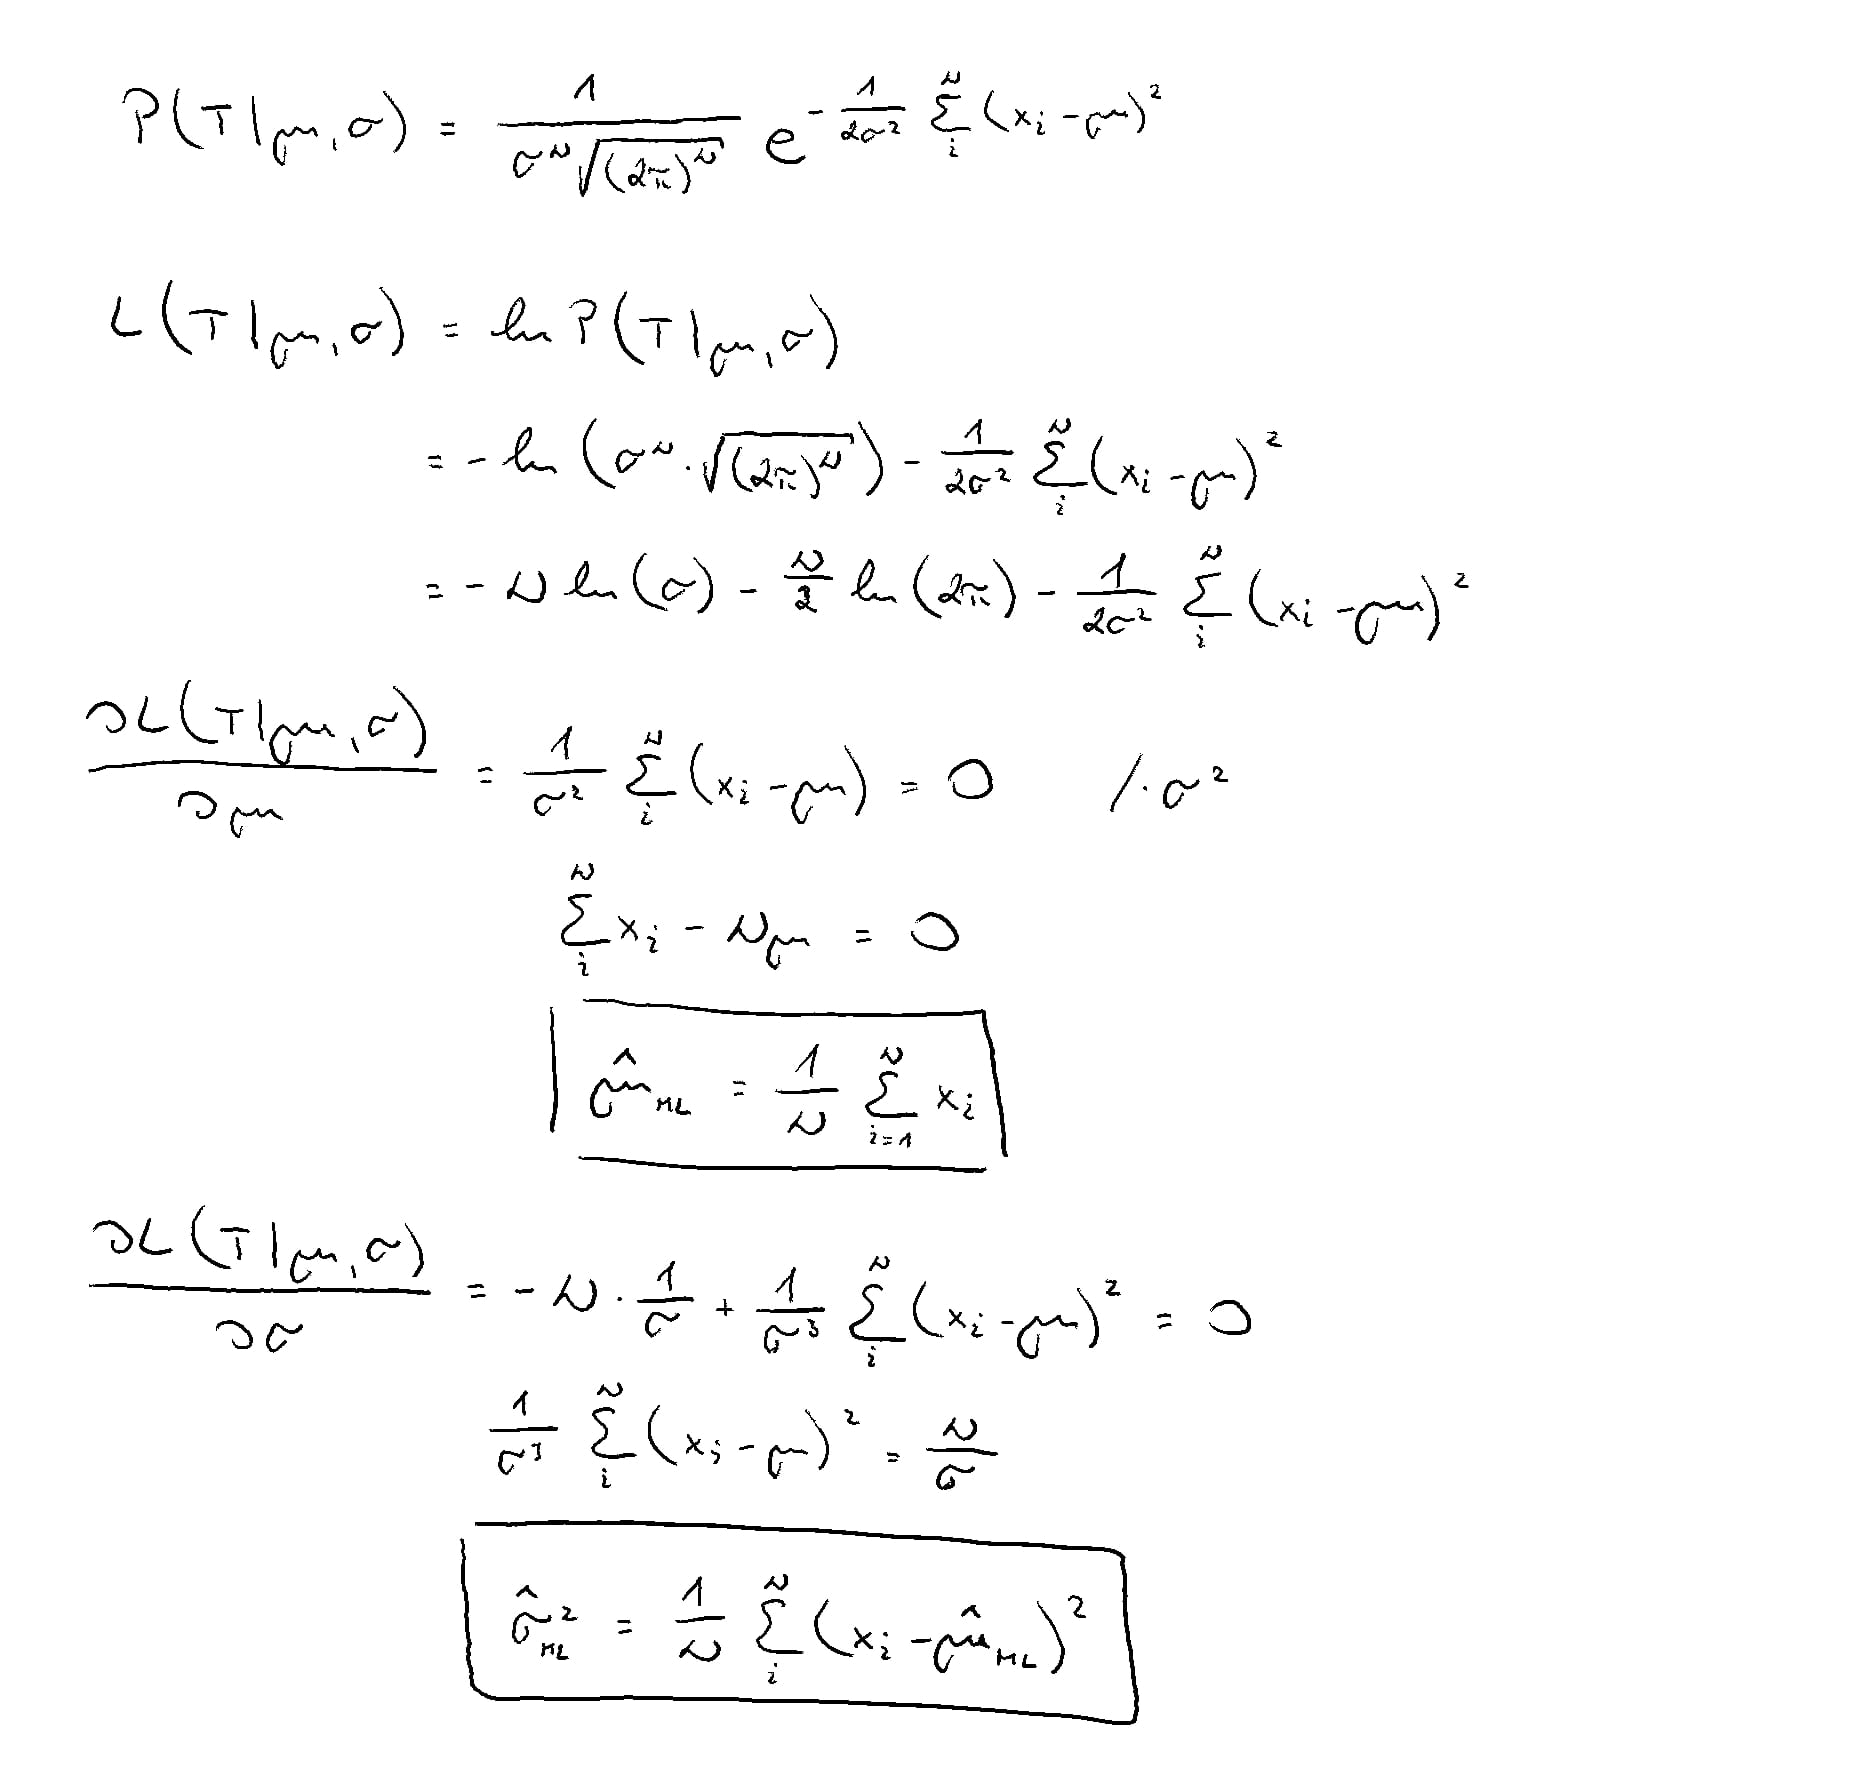 P(T|μ,σ) = 1/(σ^N √((2π)^N)) e^(-1/(2σ²) ∑_i^N (x_i - μ)²)
L(T|μ,σ) = ln P(T|μ,σ)
= - ln (σ^N · √((2π)^N)) - 1/(2σ²) ∑_i^N (x_i - μ)²
= - N ln(σ) - N/2 ln(2π) - 1/(2σ²) ∑_i^N (x_i - μ)²
∂L(T|μ,σ)/∂μ = 1/σ² ∑_i^N (x_i - μ) = 0 /· σ²
∑_i^N x_i - Nμ = 0
μ̂_ML = 1/N ∑_{i=1}^N x_i
∂L(T|μ,σ)/∂σ = - N · 1/σ + 1/σ³ ∑_i^N (x_i - μ)² = 0
1/σ³ ∑_i^N (x_i - μ)² = N/σ
σ̂²_ML = 1/N ∑_i^N (x_i - μ̂_ML)²